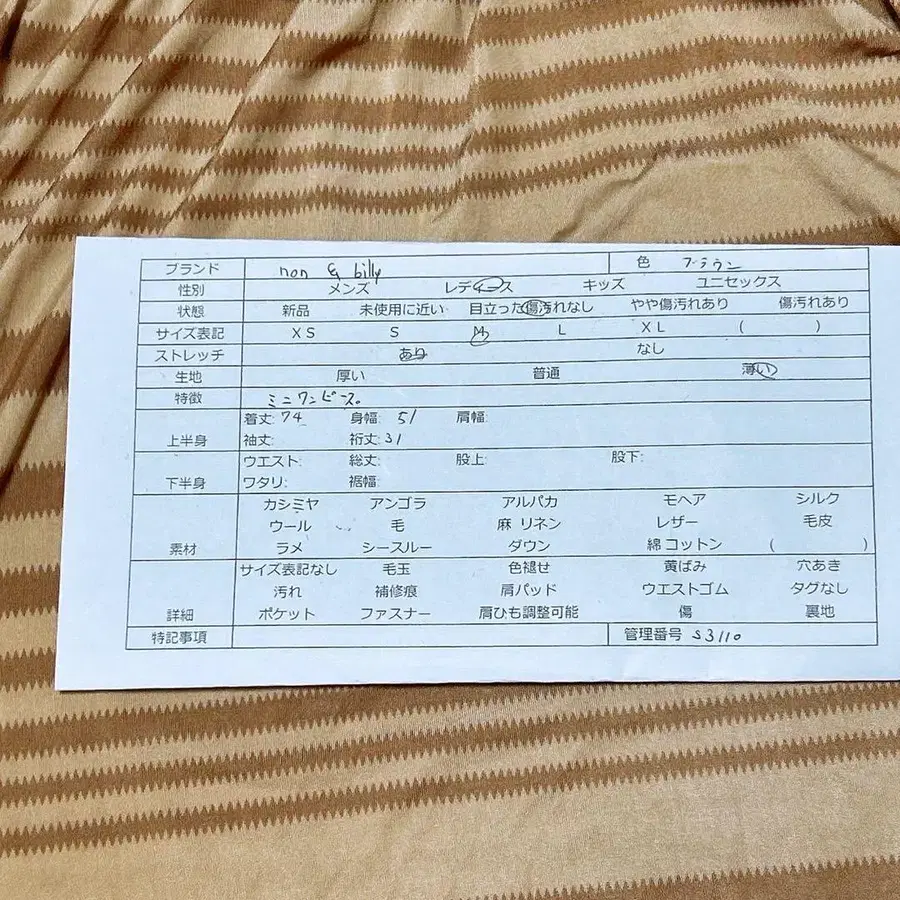 ブランド non & billy 色 ブラウン
性別 メンズ レディース キッズ ユニセックス
状態 新品 未使用に近い 目立った傷汚れなし やや傷汚れあり 傷汚れあり
サイズ表記 XS S M L XL ( )
ストレッチ あり なし
生地 厚い 普通 薄い
特徴 ミニワンピース。
着丈: 74 身幅: 51 肩幅:
上半身 袖丈: 裄丈: 31
ウエスト: 総丈: 股上: 股下:
下半身 ワタリ: 裾幅:
カシミヤ アンゴラ アルパカ モヘア シルク
ウール 毛 麻 リネン レザー 毛皮
素材 ラメ シースルー ダウン 綿 コットン ( )
サイズ表記なし 毛玉 色褪せ 黄ばみ 穴あき
汚れ 補修痕 肩パッド ウエストゴム タグなし
詳細 ポケット ファスナー 肩ひも調整可能 傷 裏地
特記事項 管理番号 S3110